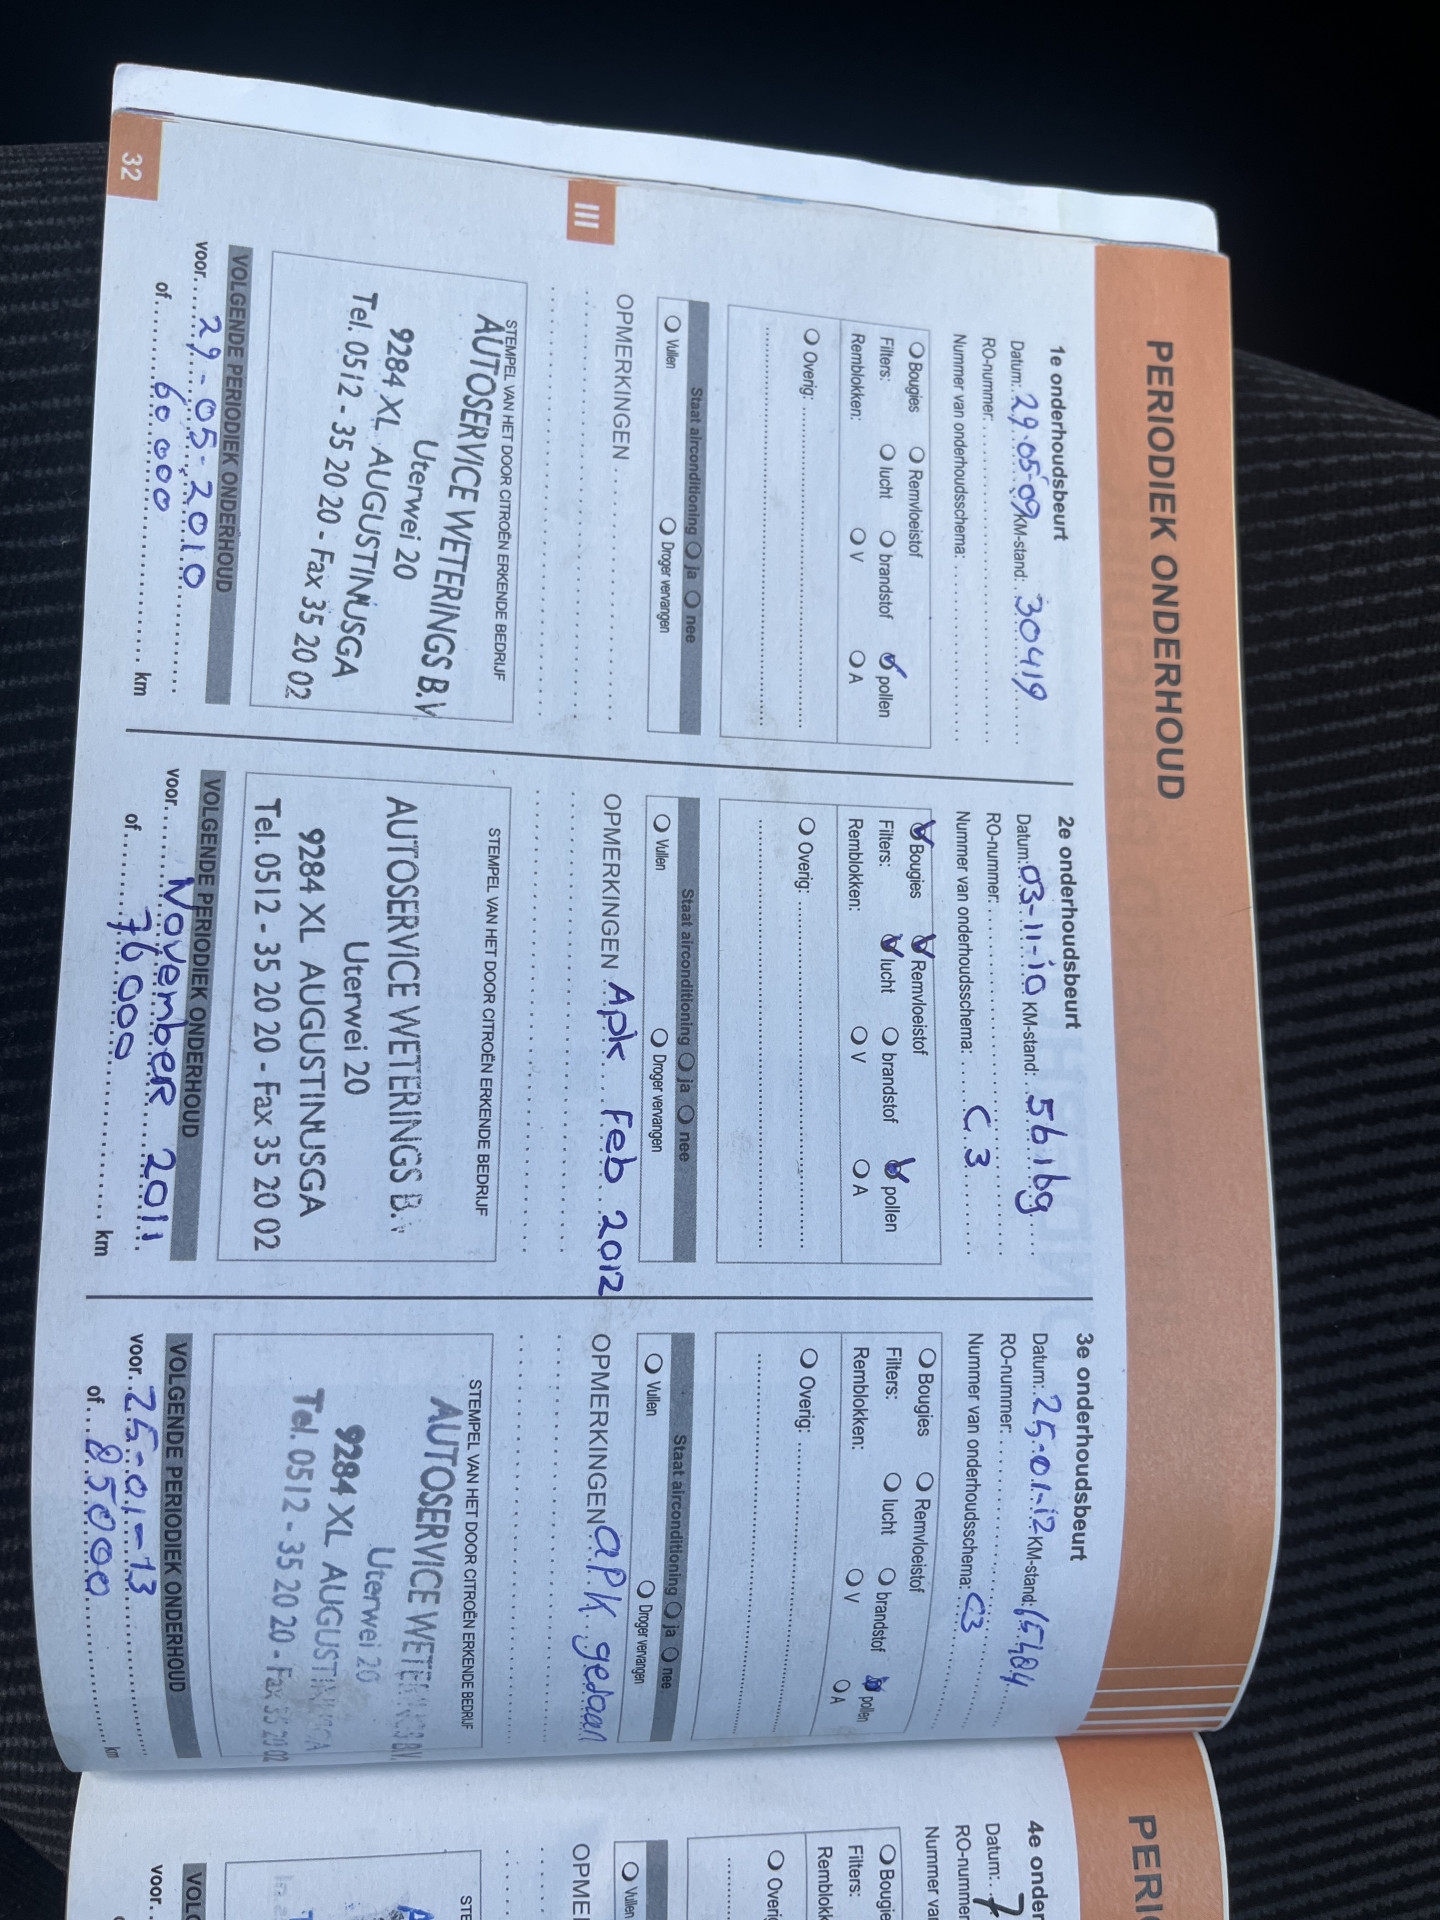 PERIODIEK ONDERHOUD
1e onderhoudsbeurt
Datum: 29-05-09 KM-stand: 30419
RO-nummer:
Nummer van onderhoudsschema:
Bougies Remvloeistof
Filters: lucht brandstof pollen
Remblokken: V A
Overig:
Staat airconditioning ja nee
Vullen Droger vervangen
OPMERKINGEN
III
STEMPEL VAN HET DOOR CITROËN ERKENDE BEDRIJF
AUTOSERVICE WETERINGS B.V
Uterwei 20
9284 XL AUGUSTINUSGA
Tel. 0512 - 35 20 20 - Fax 35 20 02
VOLGENDE PERIODIEK ONDERHOUD
voor 29-05-2010
of 60000 km
32
2e onderhoudsbeurt
Datum: 03-11-10 KM-stand: 56169
RO-nummer:
Nummer van onderhoudsschema: C3
Bougies Remvloeistof
Filters: lucht brandstof pollen
Remblokken: V A
Overig:
Staat airconditioning ja nee
Vullen Droger vervangen
OPMERKINGEN Apk Feb 2012
STEMPEL VAN HET DOOR CITROËN ERKENDE BEDRIJF
AUTOSERVICE WETERINGS B.V
Uterwei 20
9284 XL AUGUSTINUSGA
Tel. 0512 - 35 20 20 - Fax 35 20 02
VOLGENDE PERIODIEK ONDERHOUD
voor November 2011
of 76000 km
3e onderhoudsbeurt
Datum: 25-01-12 KM-stand:
RO-nummer:
Nummer van onderhoudsschema: C3
Bougies Remvloeistof
Filters: lucht brandstof pollen
Remblokken: V A
Overig:
Staat airconditioning ja nee
Vullen Droger vervangen
OPMERKINGEN aPK gedaan
STEMPEL VAN HET DOOR CITROËN ERKENDE BEDRIJF
AUTOSERVICE WETERINGS B.V.
Uterwei 20
9284 XL AUGUSTINUSGA
Tel. 0512 - 35 20 20 - Fax 35 20 02
VOLGENDE PERIODIEK ONDERHOUD
voor 25-01-13
of 85000 km
PERI
4e onder
Datum: 7
RO-nummer
Nummer va
Bougie
Filters:
Remblokk
Overig
Vullen
OPME
STE
VOLG
voor